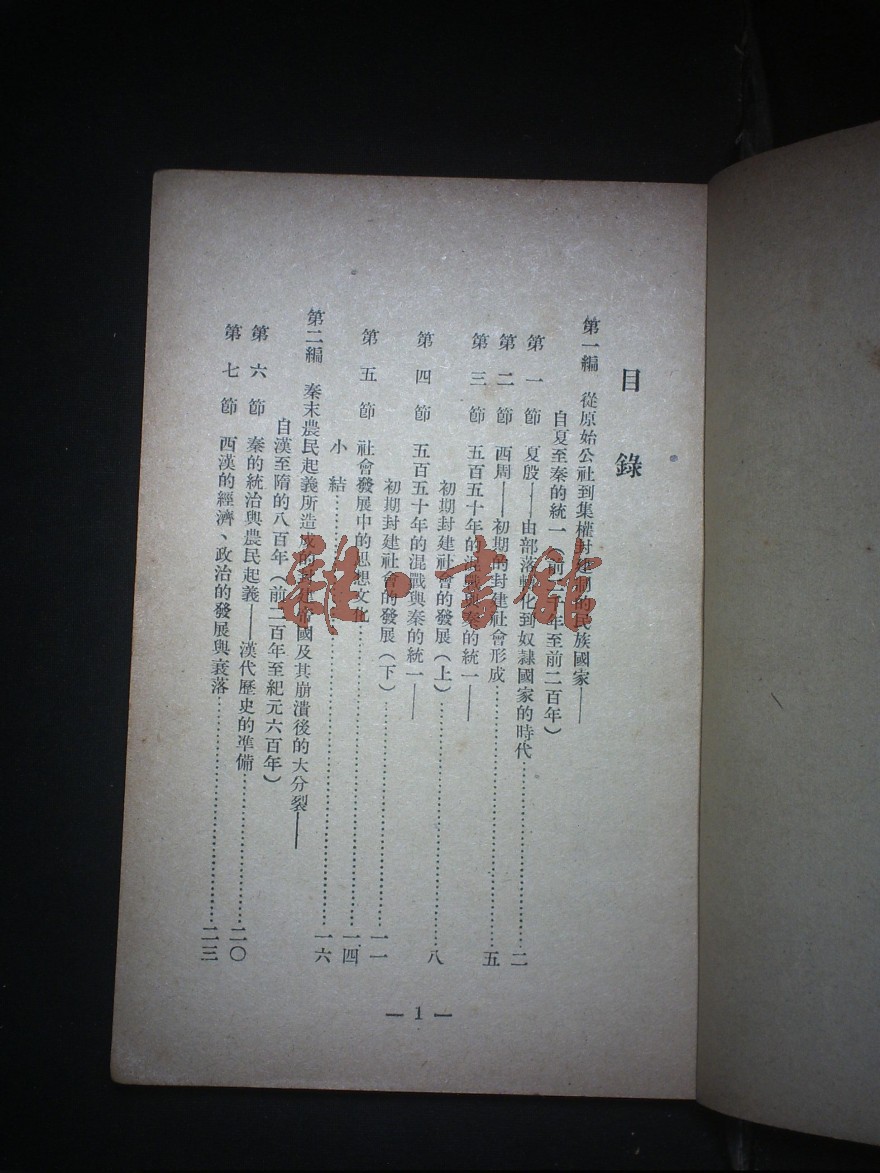 目錄
第一編 從原始公社到集權封建制的民族國家——
自夏至秦的統一(前 千年至前二百年)
第一節 夏殷——由部落轉化到奴隸國家的時代……二
第二節 西周——初期的封建社會形成……五
第三節 五百五十年的混戰與秦的統一——
初期封建社會的發展(上)……八
第四節 五百五十年的混戰與秦的統一——
初期封建社會的發展(下)……一一
第五節 社會發展中的思想文化……一四
小結……一六
第二編 秦末農民起義所造成的封建帝國及其崩潰後的大分裂——
自漢至隋的八百年(前二百年至紀元六百年)
第六節 秦的統治與農民起義——漢代歷史的準備……二〇
第七節 西漢的經濟、政治的發展與衰落……二三
— 1 —
雜·書館